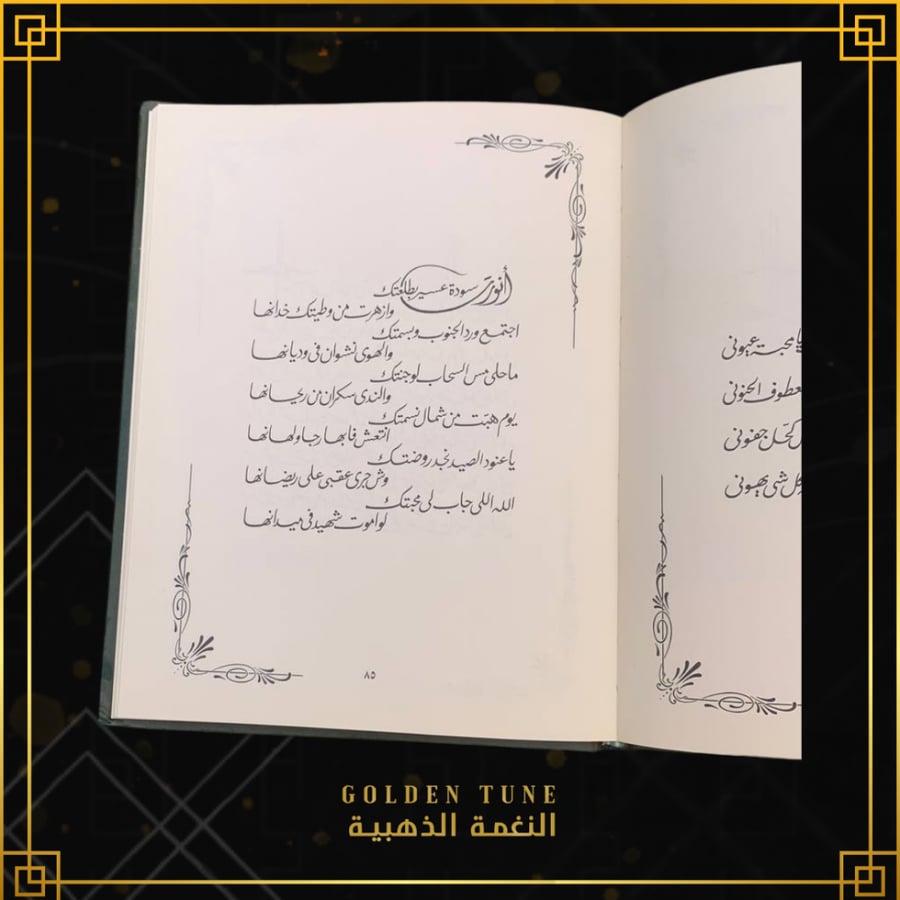 أنورت سودة عسير بطلعتك
وازهرت من وطيتك خدانها
اجتمع ورد الجنوب وبسمتك
والهوى نشوان في وديانها
ماحلى مس السحاب لوجنتك
والندى سكران من ريحانها
يوم هبّت من شمال نسمتك
انتعش فابها رجا ولهانها
يا عنود الصيد نجد روضتك
وش جرى عقبي على ريضانها
الله اللي جاب لي محبتك
لو اموت شهيد في ميدانها
٨٥
يا محبة عيوني
الحنوني
كحل جفوني
شي يهوني
GOLDEN TUNE
النغمة الذهبية